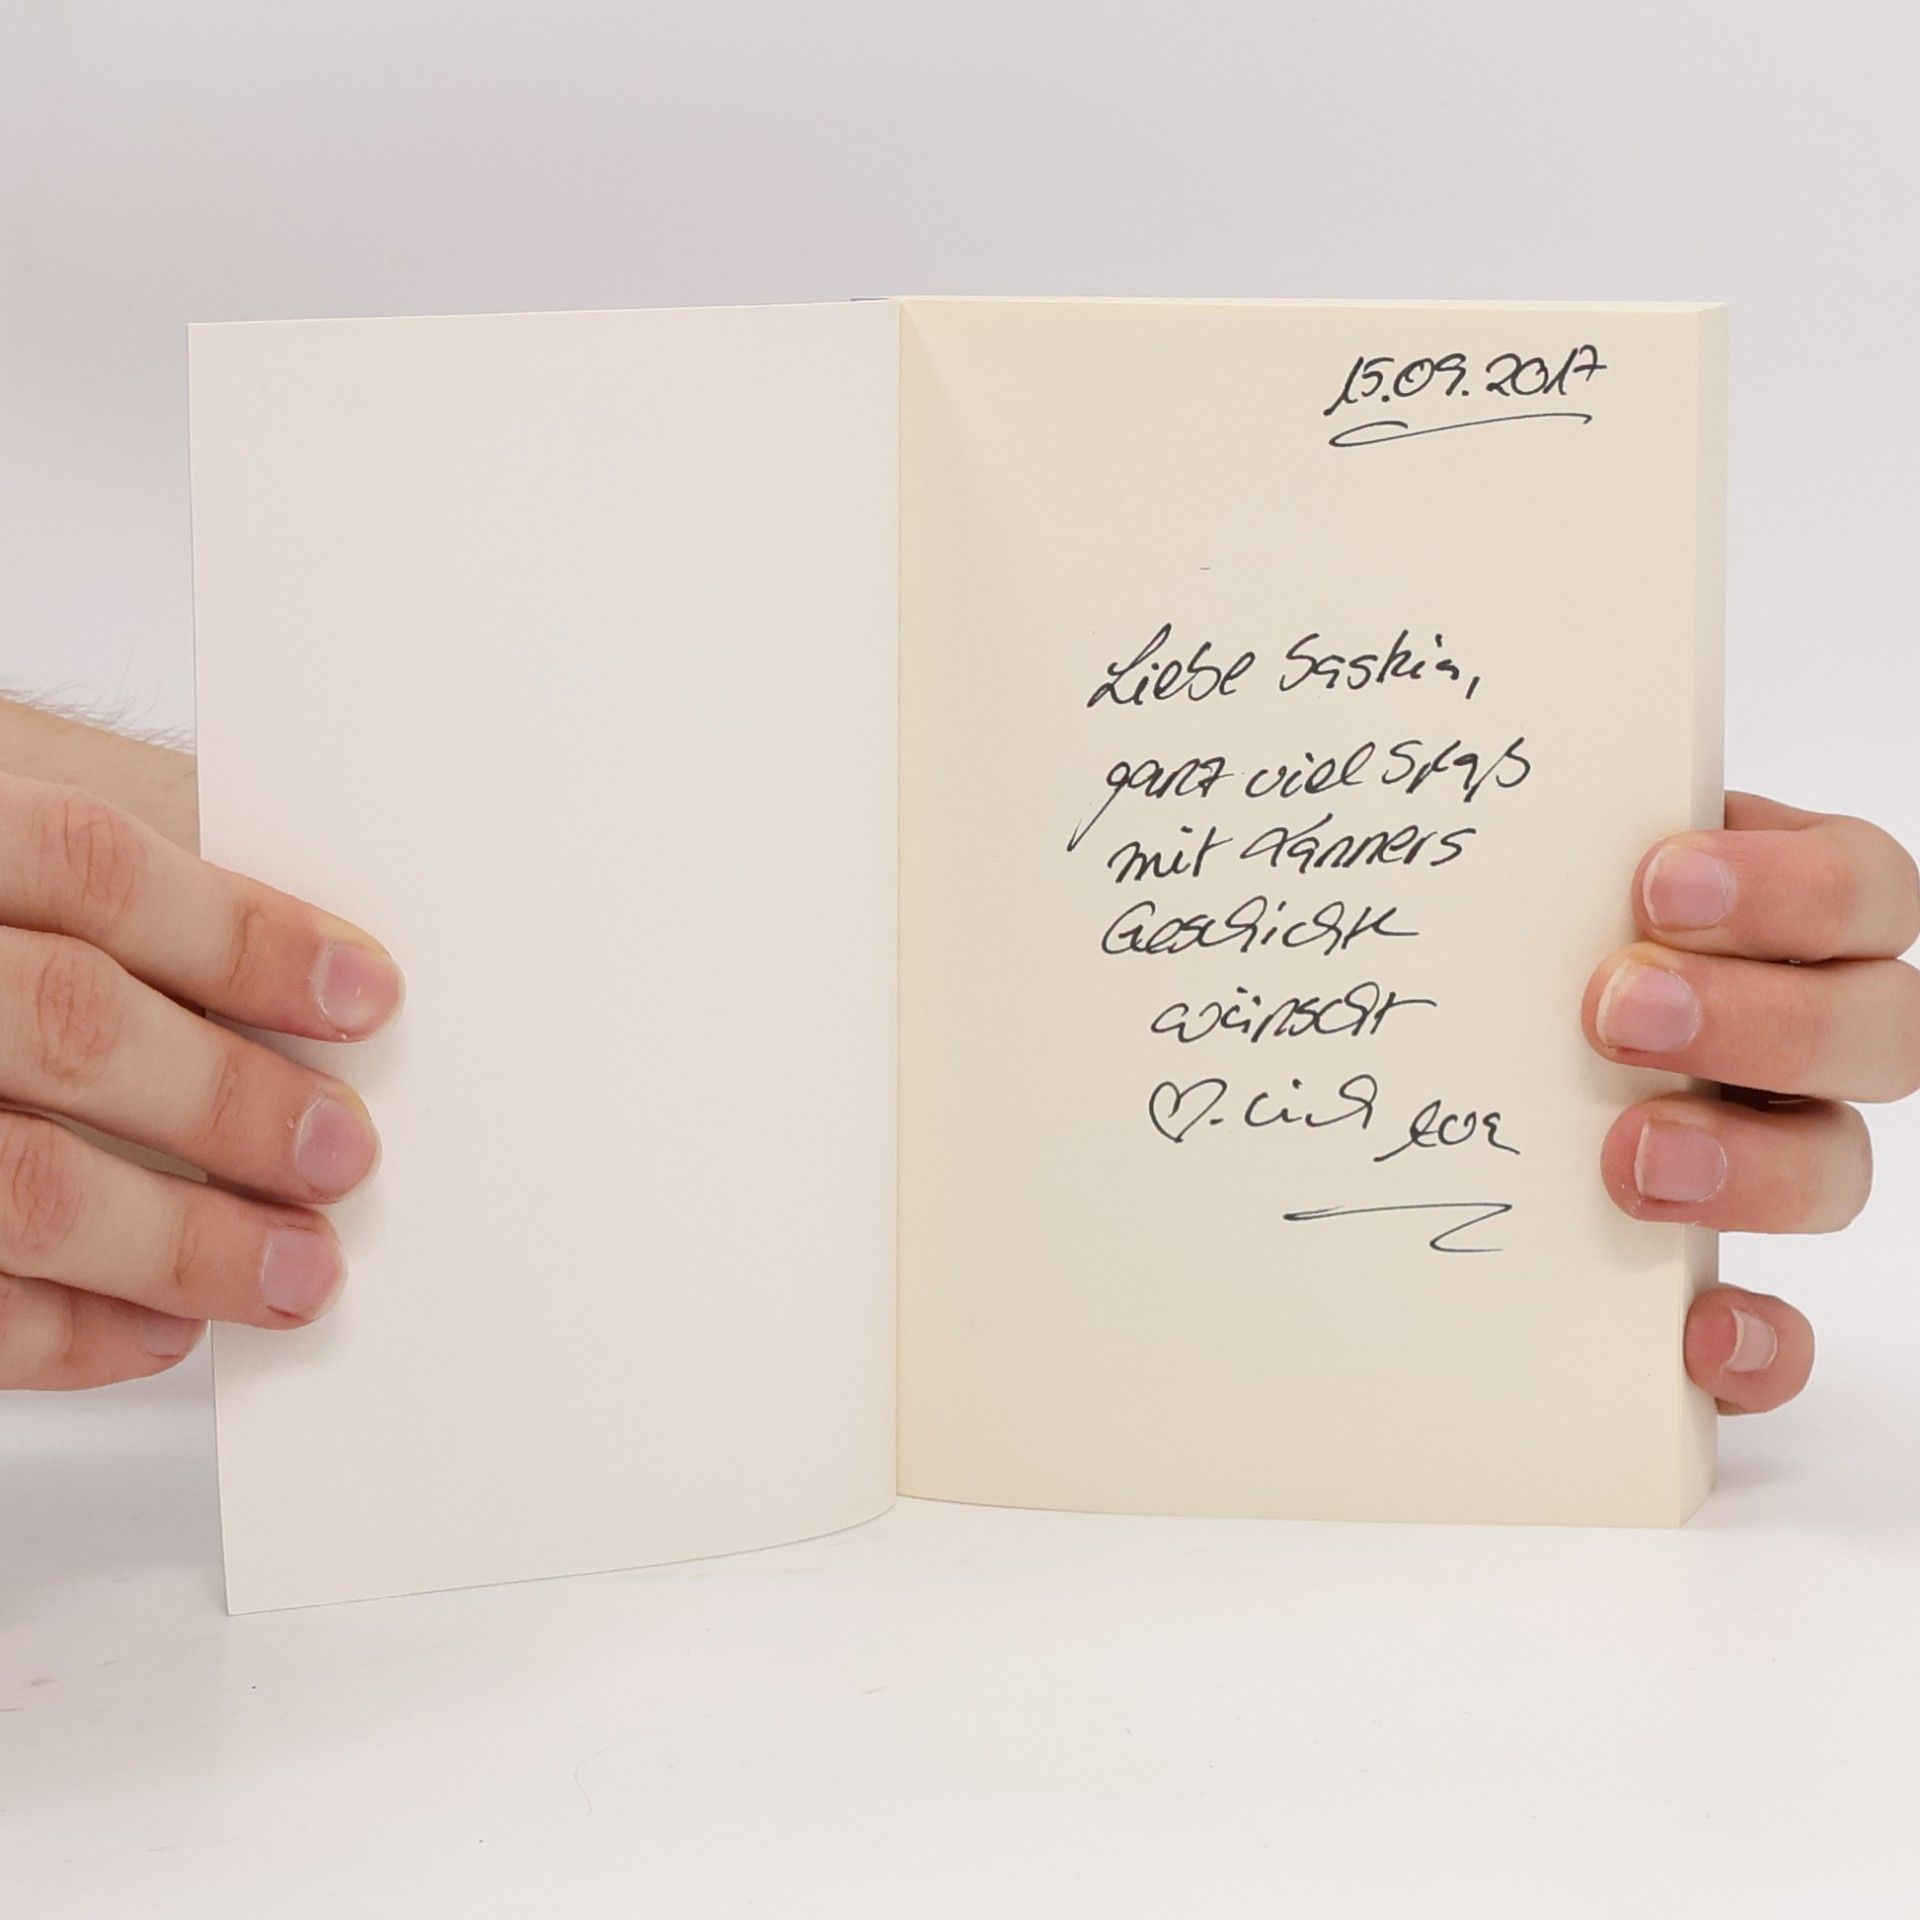 15.09.2017
Liebe Saskia,
ganz viel Spaß
mit Tanners
Geschichte
wünscht
♡. lich